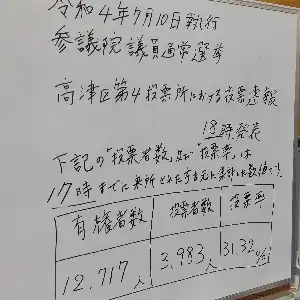 令和4年7月10日執行
参議院議員通常選挙
高津区第4投票所における投票速報
18時発表
下記の「投票者数」及び「投票率」は
17時までに来所された方を元に集計した数値です。
有権者数 投票者数 投票率
12,717人 3,983人 31.32%